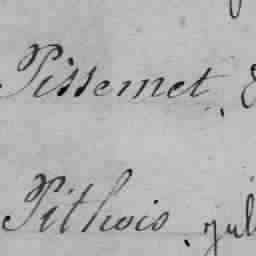 Pissemet,
Pithois, Jul